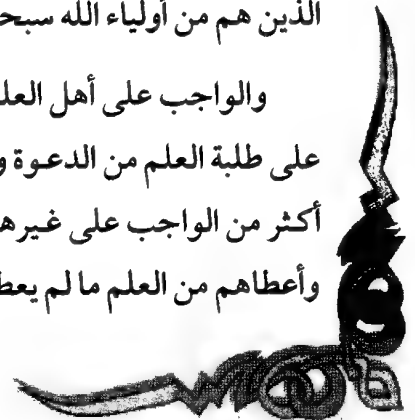 الذين هم من أولياء الله سبحا
والواجب على أهل العلـ
على طلبة العلم من الدعـوة و
أكـثر من الواجب على غـيرهـ
وأعطاهم من العلم ما لم يعط